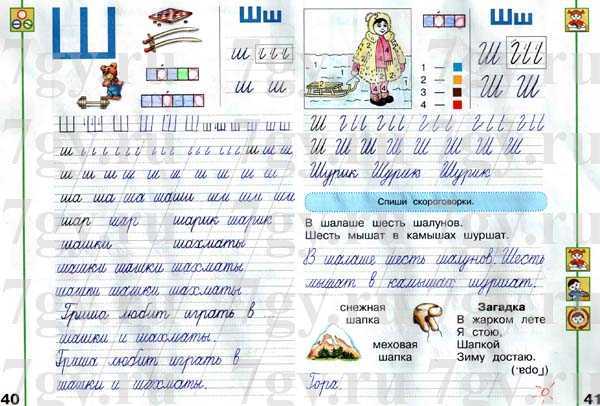 Ш
Шш
ш
ш ш
ш ш ш ш ш ш ш
ша ша ша шаши ши ши ши
шар шар шарик шарик
шашки шахматы
шашки шашки шахматы
шашки шашки шахматы
Гриша любит играть в
шашки и шахматы.
Гриша любит играть в
шашки и шахматы.
40
Шш
1 –
2 –
3 –
4 –
Ш
Ш Ш
Ш Ш Ш Ш Ш Ш Ш
Шурик Шурик Шурик
Спиши скороговорки.
В шалаше шесть шалунов.
Шесть мышат в камышах шуршат.
В шалаше шесть шалунов. Шесть
мышат в камышах шуршат.
снежная
шапка
меховая
шапка
Загадка
В жарком лете
Я стою,
Шапкой
Зиму достаю.
(Гора)
Гора.
41
7gy.ru